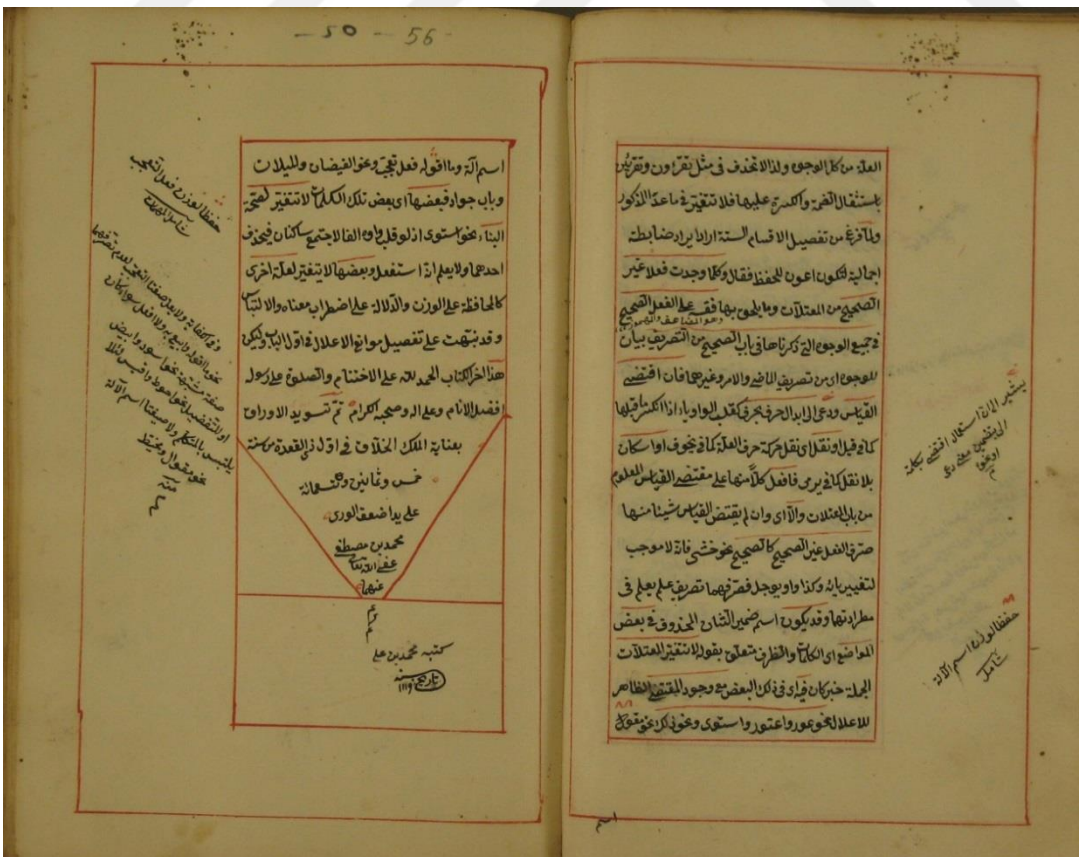 العلة من كل الوجوه ولذا لا تحذف فى مثل تقرؤن وتقرئين
باستثقال الضمة والكسرة عليها فلا تتغير فى ما عدا المذكور
ولما فرغ من تفصيل الاقسام الستة اراد ايراد ضابطة
اجمالية لتكون اعون للحفظ فقال وكلما وجدت فعلا غير
الصحيح من المعتلات وما يلحق بها فقسه على الفعل الصحيح
وهو المضاعف والمهموز
فى جميع الوجوه التى ذكرناها فى باب الصحيح من التصريف بيان
للوجوه اى من تصريف الماضى والامر وغيرهما فان اقتضى
القياس ودعى الى ابدال حرف بحرف كقلب الواو ياء اذا انكسر ما قبلها
كما فى قيل او نقل اى نقل حركة حرف العلة كما فى يخوف او اسكان
بلا نقل كما فى يرمى فافعل كلا منها على مقتضى القياس المعلوم
من باب المعتلات والا اى وان لم يقتض القياس شيئا منها
صرف الفعل غير الصحيح كالصحيح نحو خشى فانه لا موجب
لتغيير يائه وكذا واو يوجل فصرفهما تصريف علم يعلم فى
مطرادتها وقد يكون اسم ضمير الشان المحذوف فى بعض
المواضع اى الكلمات والظرف متعلق بقوله لا تتغير المعتلات
الجملة خبر كان فيه اى فى ذلك البعض مع وجود المقتضى الظاهر
للاعلال نحو عور واعتور واستوى ونحو ذلك نحو مقول
اسم
يشير الى ان استعمال اقتضى بكلمة
الى بتضمين معنى دعى
او نحو
م
حفظا لوزن اسم الآلة
شامل
- 50 - 56 -
اسم آلة وما اقوله فعل تعجب ونحو الفيضان والميلان
وباب جواد فبعضها اى بعض تلك الكلمات لا تتغير لصحة
البناء نحو استوى اذ لو قلب واوه الفا لاجتمع ساكنان فيحذف
احدهما ولا يعلم انه استفعل وبعضها لا يتغير لعلة اخرى
كالمحافظة على الوزن والدلالة على اضطراب معناه والالتباس
وقد نبهت على تفصيل موانع الاعلال فى اول الباب وليكن
هذا اخر الكتاب الحمد لله على الاختتام والصلوة على رسوله
افضل الانام وعلى اله وصحبه الكرام تم تسويد الاوراق
بعناية الملك الخلاق فى اول ذى القعدة من سنة
خمس وثمانين وتسعمائة
على يد اضعف الورى
محمد بن مصطفى
عفى الله تعالى
عنهما
كتبه محمد بن على
تاريخ سنة
١١١٩
حفظا لوزن فعل التعجب
نحو ما اقوله واقول به ولا افعل سواء كان
صفة مشبهة نحو اسود وابيض
او للتفضيل نحو
يلتبس بالمتكلم ولا صيغتا اسم الآلة
نحو مقول ومخيط
منه